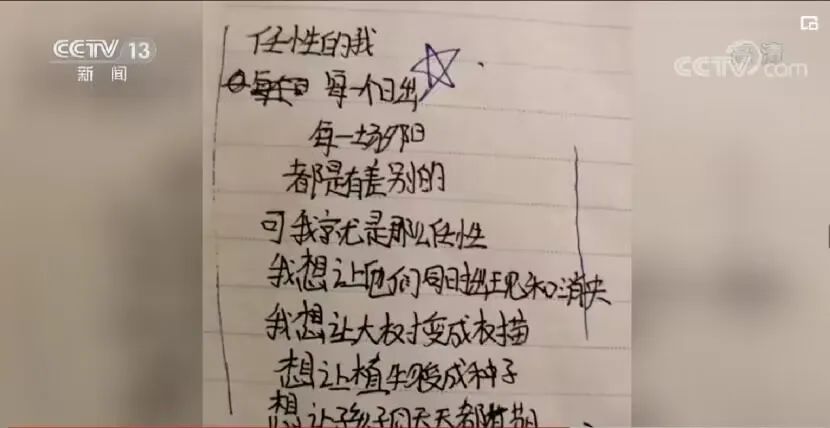 CCTV 13
新闻
高清
CCTV.com
任性的我
每一个日出
每一场夕阳
都是有差别的
可我就是那么任性
我想让他们同日出现和消失
我想让大权变成权
想让植物变成种子
想让孩子们天天都